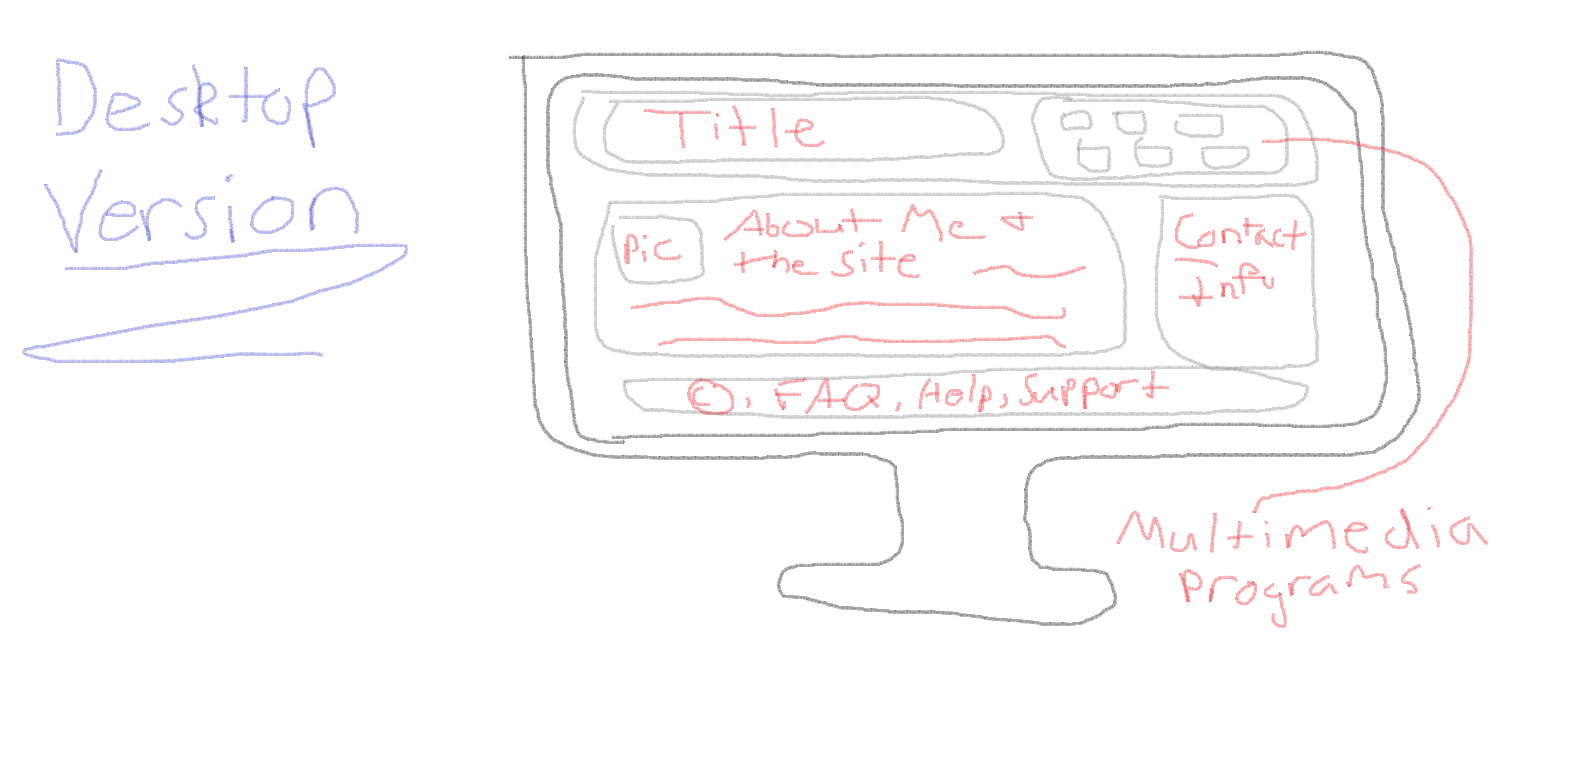 Desktop
Version
Title
Pic
About Me +
the site
Contact
Info
©, FAQ, Help, Support
Multimedia
programs